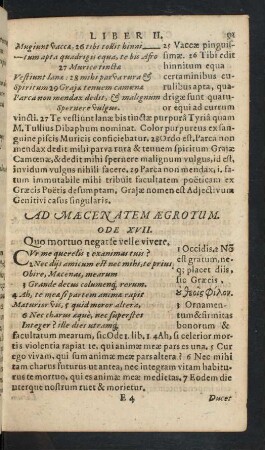 LIBER II. 91
Mugiunt vaccæ, 26 tibi tollit hinni-
-tum apta quadrigis equa, te bis Afro
27 Murice tinctæ
Vestiunt lanæ: 28 mihi parva rura &
Spiritum 29 Grajæ tenuem camœnæ
Parca non mendax dedit, & malignum
Spernere vulgus.
25 Vaccæ pinguis-
simæ. 26 Tibi edit
hinnitum equa
certaminibus cu-
rulibus apta, qua-
drigæ sunt quatu-
or equi ad currum
vincti. 27 Te vestiunt lanæ bis tinctæ purpurâ Tyriâ quam
M. Tullius Dibaphum nominat. Color purpureus ex san-
guine piscis Muricis conficiebatur. 28 Ordo est. Parca non
mendax dedit mihi parva rura & tenuem spiritum Grajæ
Camœnæ, & dedit mihi spernere malignum vulgus, id est,
invidum vulgus nihili facere. 29 Parca non mendax, i, fa-
tum immutabile mihi tribuit facultatem poëticam ex
Græcis Poëtis desumptam, Grajæ nomen est Adjectivum
Genitivi casus singularis.
AD MÆCENATEM ÆGROTUM.
ODE XVII.
Quo mortuo negat se velle vivere.
CUr me querelis 1 exanimas tuis?
2 Nec diis amicum est nec mihi, te prius
Obire, Mæcenas, mearum
3 Grande decus columenq, rerum.
4 Ah, te meæ si partem animæ rapit
Maturior vis, 5 quid moror altera,
6 Nec charus æquè, nec superstes
Integer? ille dies utramq,
1 Occidis, 2 Nō
est gratum, ne-
q; placet diis,
sic Græcis,
Θεοῖς Φίλον.
3 Ornamen-
tum & firmitas
bonorum &
facultatum mearum, sic Ode 1. lib. 1. 4 Ah, si celerior mor-
tis violentia rapiat te. qui animæ meæ pars es una, 5 Cur
ego vivam. qui sum animæ meæ pars altera? 6 Nec mihi
tam charus futurus ut antea, nec integram vitam habitu-
rus te mortuo, qui es animæ meæ medietas. 7 Eodem die
uterque nostrum ruet & morietur.
E 4 Ducet